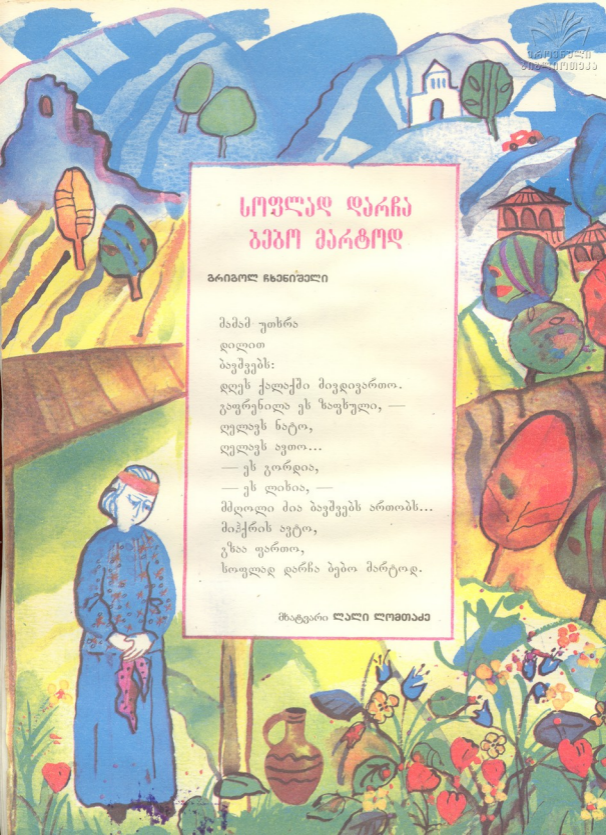 ეროვნული
ბიბლიოთეკა
სოფლად დარჩა
ბებო მარტოდ
გრიგოლ ჩხენიშელი
მამამ უთხრა
დილით
ბავშვებს:
დღეს ქალაქში მივდივართო.
გაფრენილა ეს ზაფხული, —
ღელავს ნატო,
ღელავს ავთო...
— ეს გორდია,
— ეს ლიხია, —
მძღოლი ძია ბავშვებს ართობს...
მიჰქრის ავტო,
გზაა ფართო,
სოფლად დარჩა ბებო მარტოდ.
მხატვარი ლალი ლომთაძე